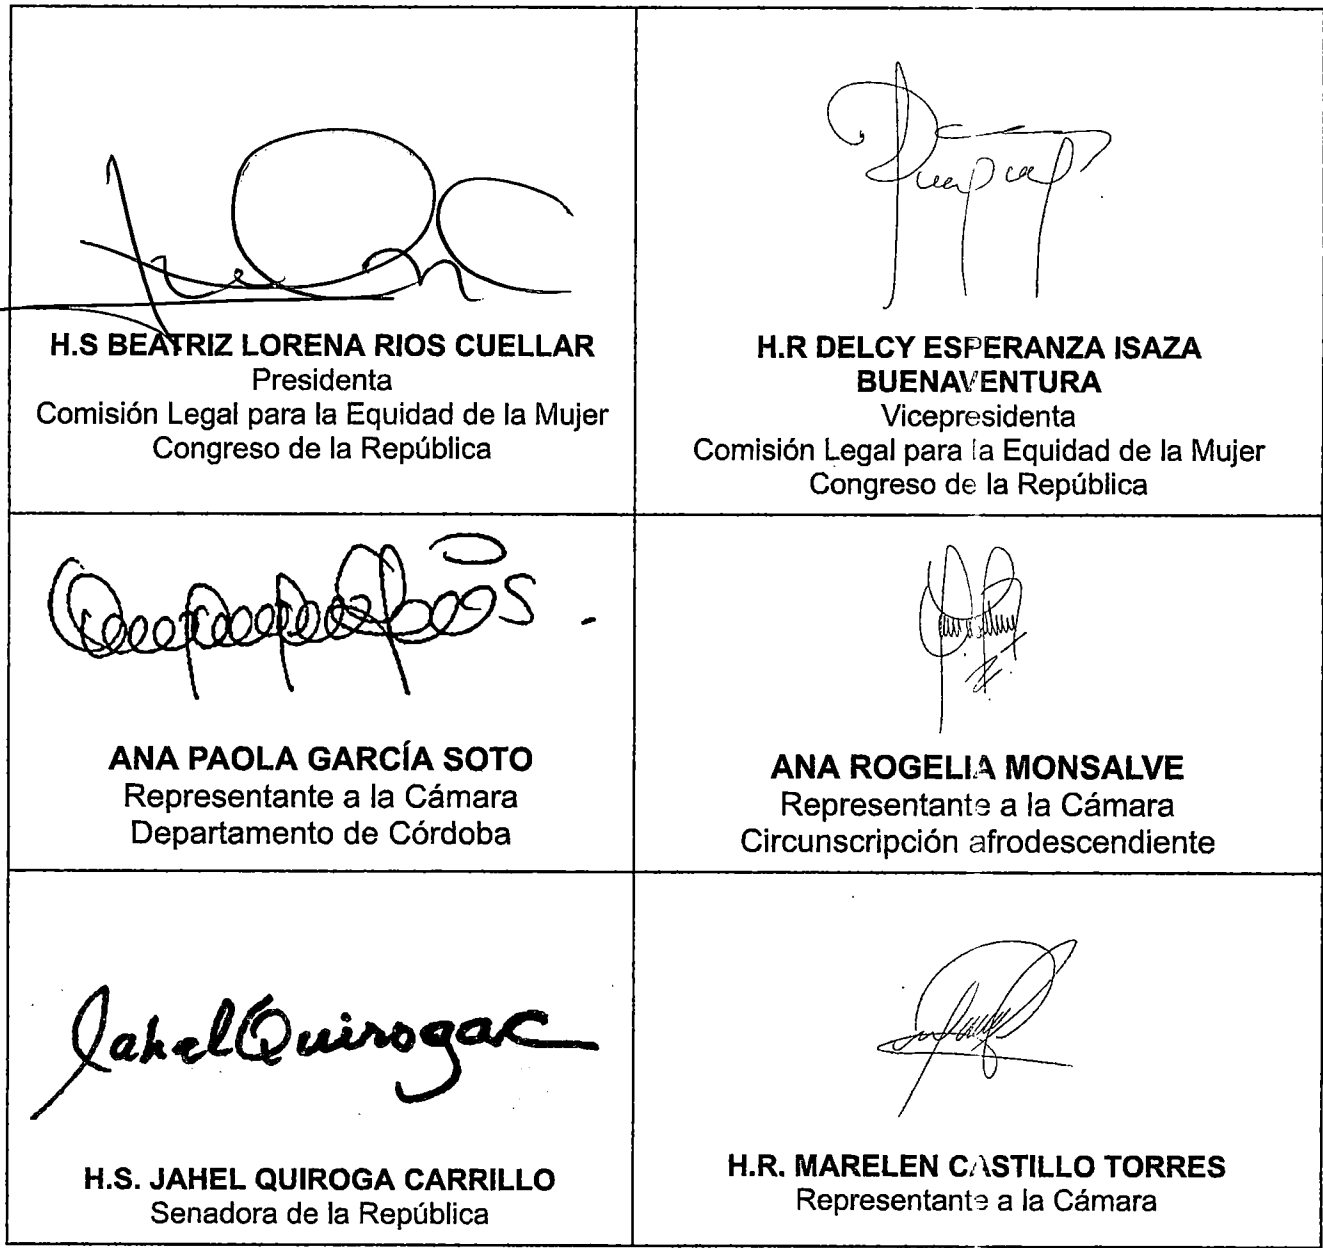 H.S BEATRIZ LORENA RIOS CUELLAR
Presidenta
Comisión Legal para la Equidad de la Mujer
Congreso de la República
H.R DELCY ESPERANZA ISAZA
BUENAVENTURA
Vicepresidenta
Comisión Legal para la Equidad de la Mujer
Congreso de la República
ANA PAOLA GARCÍA SOTO
Representante a la Cámara
Departamento de Córdoba
ANA ROGELIA MONSALVE
Representante a la Cámara
Circunscripción afrodescendiente
Jahel Quiroga C
H.S. JAHEL QUIROGA CARRILLO
Senadora de la República
H.R. MARELEN CASTILLO TORRES
Representante a la Cámara